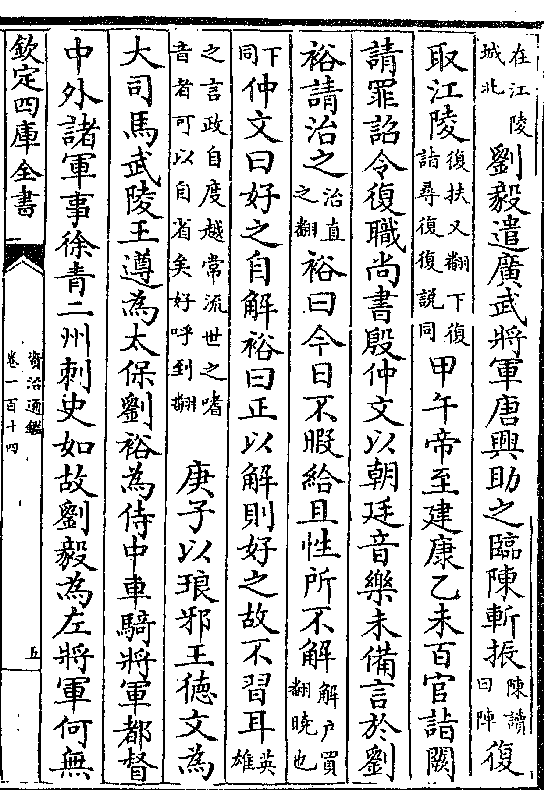 在江陵城北劉毅遣廣武將軍唐興助之臨陳斬振陳讀曰陣復
取江陵復扶又翻下復詣尋復復説同甲午帝至建康乙未百官詣闕
請罪詔令復職尚書殷仲文以朝廷音樂未備言於劉
裕請治之治直之翻裕曰今日不暇給且性所不解解户買翻曉也
下同仲文曰好之自解裕曰正以解則好之故不習耳英雄
之言政自度越常流世之嗜音者可以自省矣好呼到翻庚子以琅邪王德文為
大司馬武陵王遵為太保劉裕為侍中車騎將軍都督
中外諸軍事徐青二州刺史如故劉毅為左將軍何無
欽定四庫全書
資治通鑑
卷一百十四
五